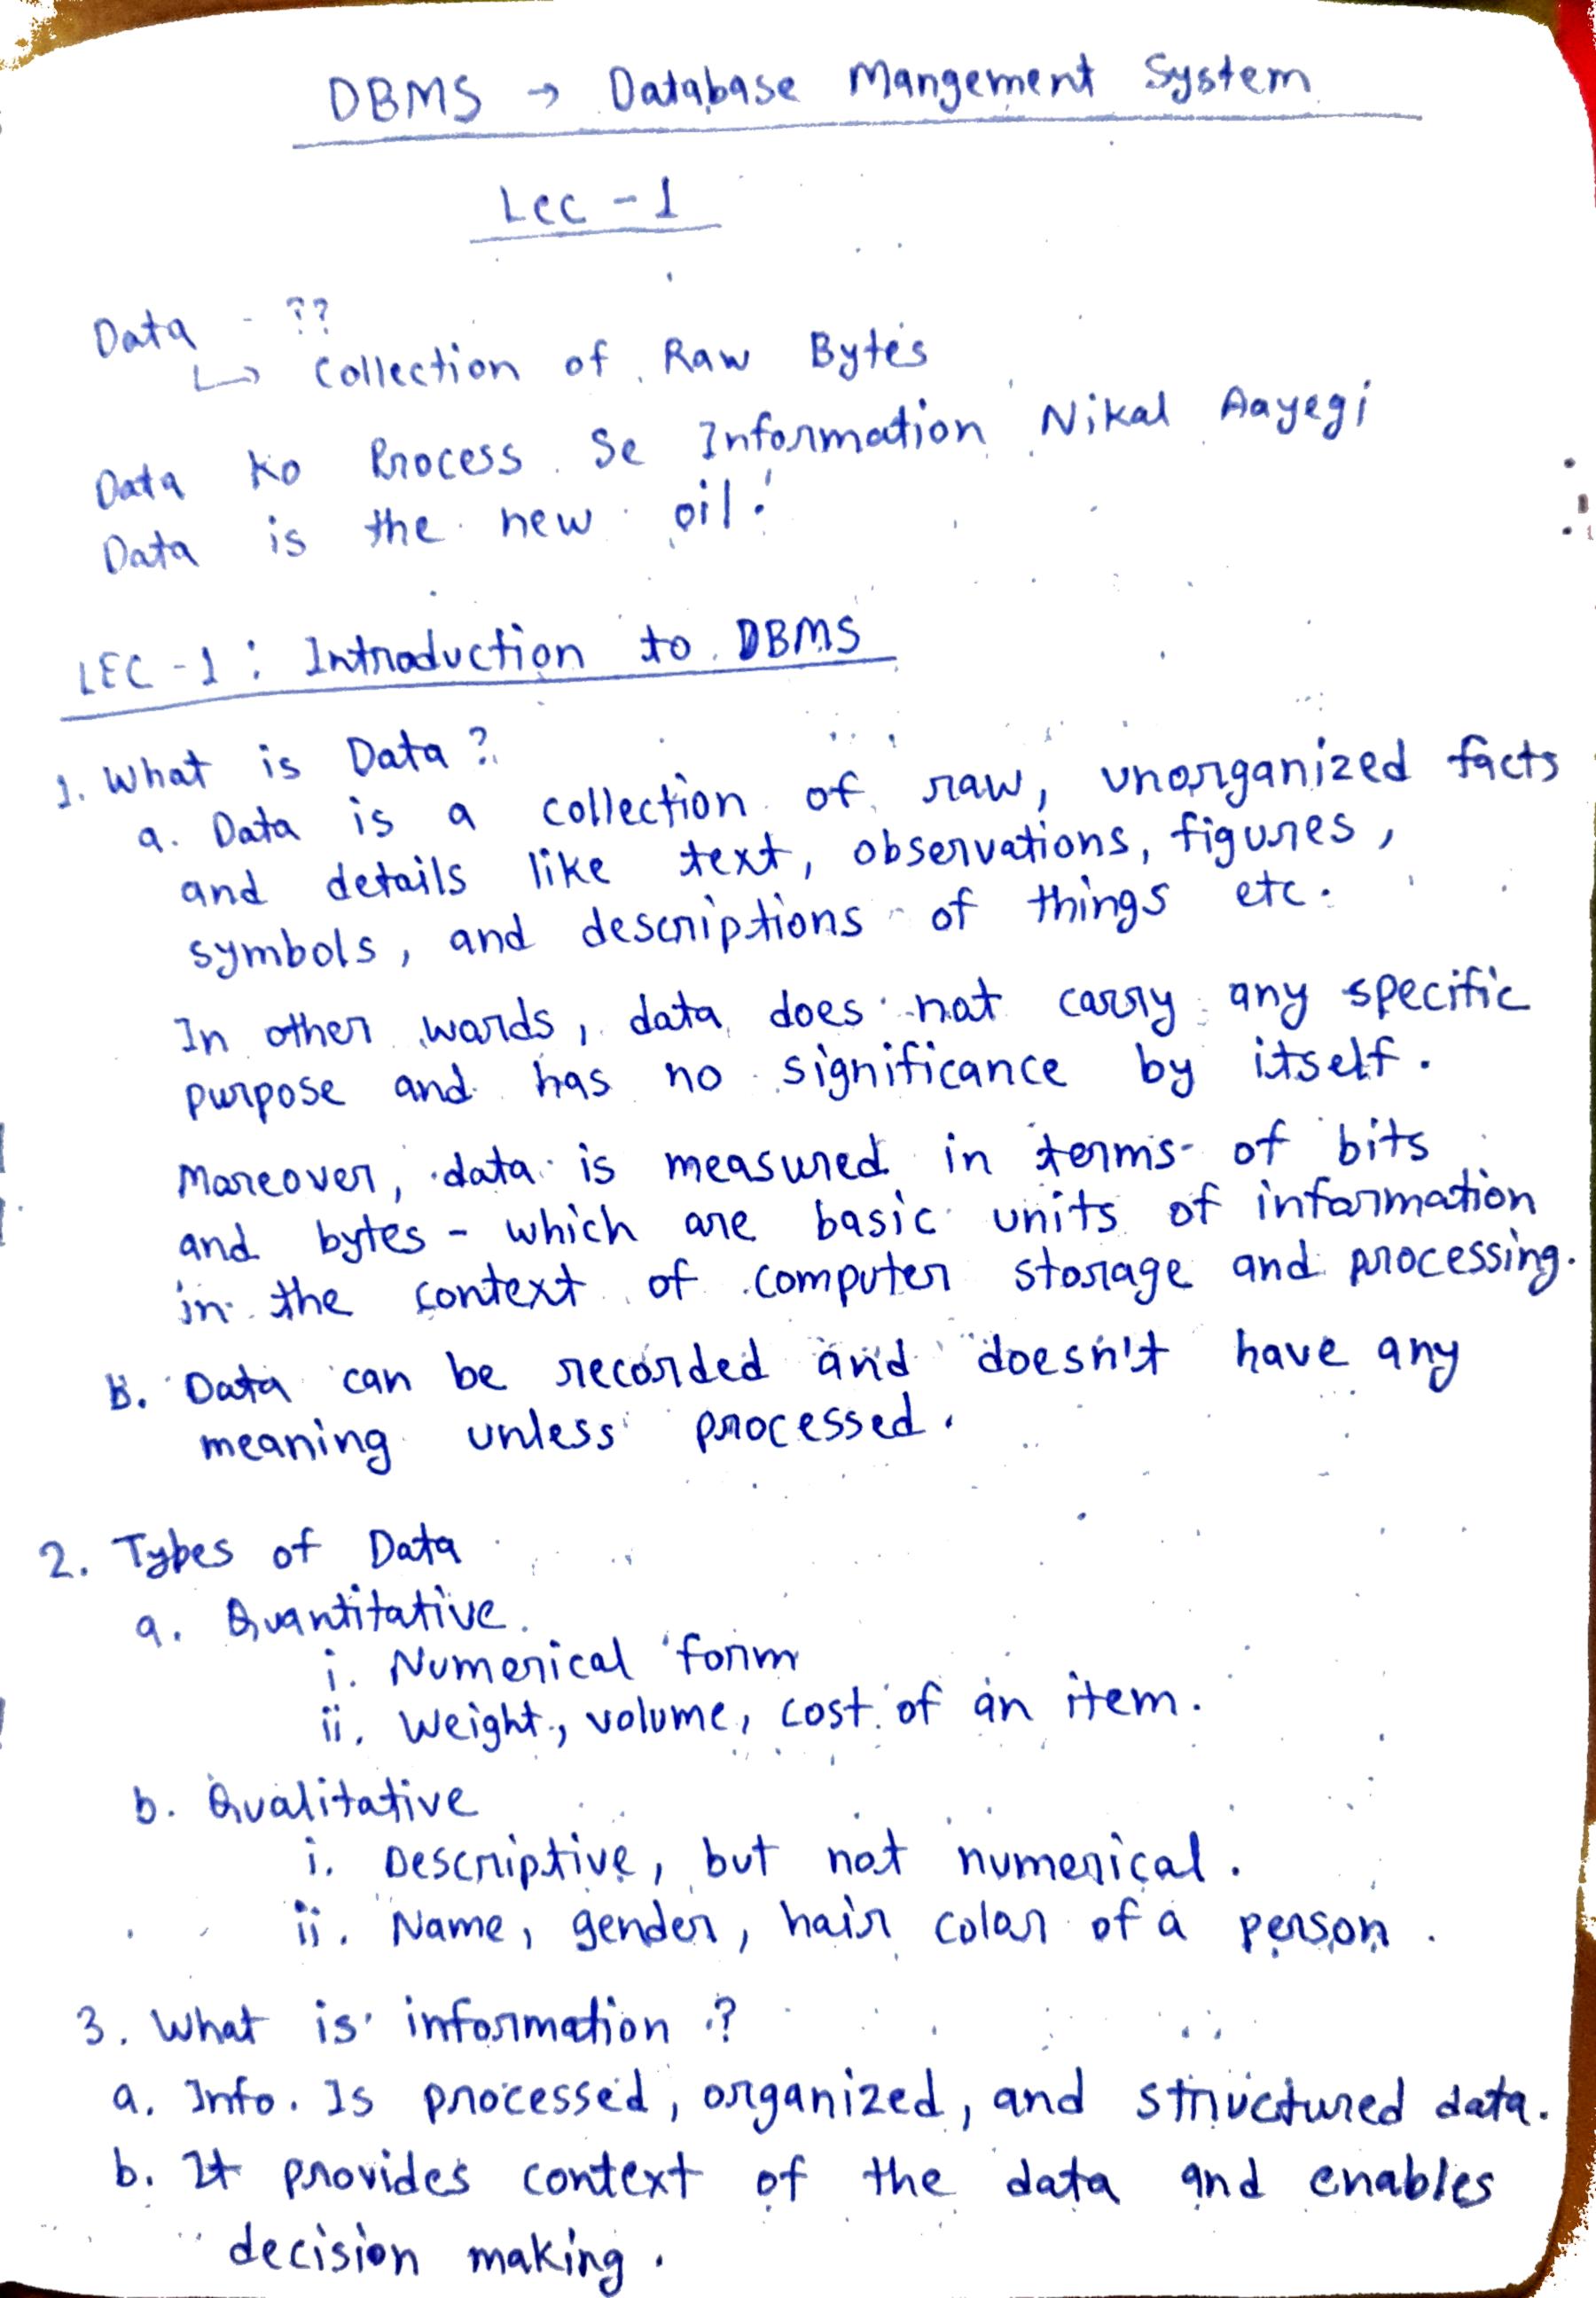 DBMS → Database Mangement System
Lec - 1
Data - ??
↳ Collection of Raw Bytes
Data Ko Process Se Information Nikal Aayegi
Data is the new oil!
LEC - 1 : Introduction to DBMS
1. What is Data ?
a. Data is a collection of raw, unorganized facts
and details like text, observations, figures,
symbols, and descriptions of things etc.
In other words, data does not carry any specific
purpose and has no significance by itself.
Moreover, data is measured in terms of bits
and bytes - which are basic units of information
in the context of computer storage and processing.
b. Data can be recorded and doesn't have any
meaning unless processed.
2. Types of Data
a. Quantitative
i. Numerical form
ii. Weight, volume, cost of an item.
b. Qualitative
i. Descriptive, but not numerical.
ii. Name, gender, hair color of a person.
3. What is information ?
a. Info. Is processed, organized, and structured data.
b. It provides context of the data and enables
decision making.